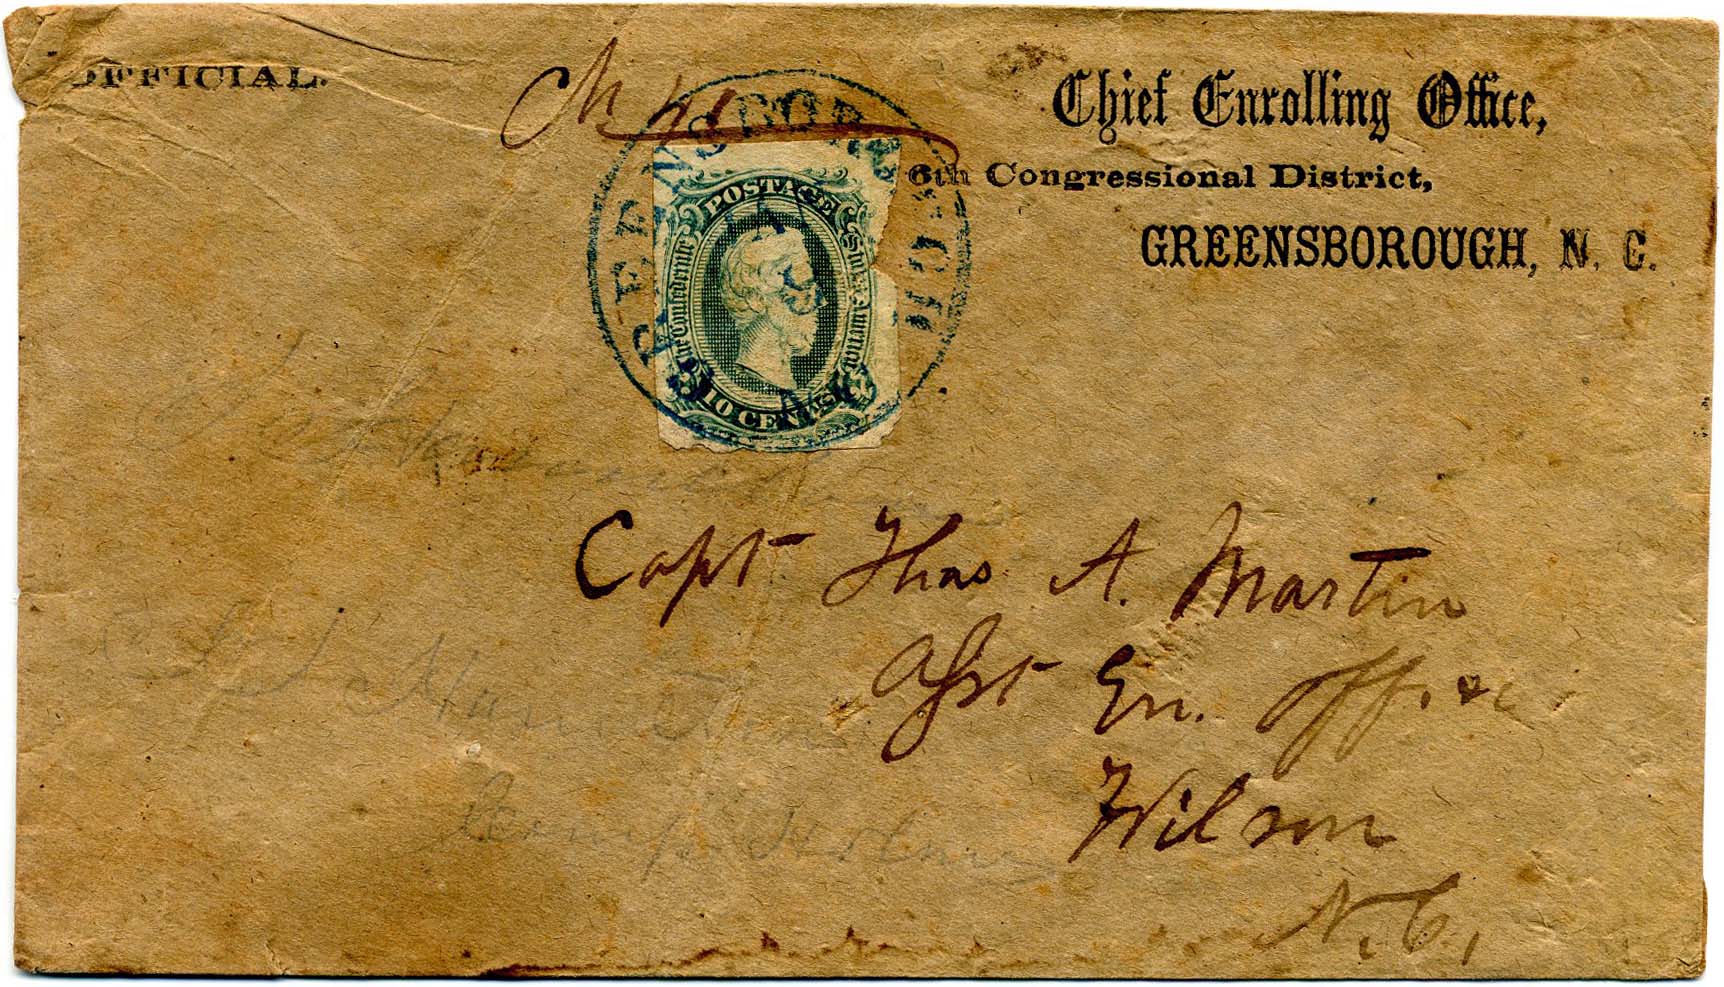 OFFICIAL.
Chief Enrolling Office,
6th Congressional District,
GREENSBOROUGH, N. C.
GREENSBOROUGH
POSTAGE
The Confederate States of America
10 CENTS
Capt Thos A. Martin
Asst En. Office
Wilson
N.C.
Camp Holmes